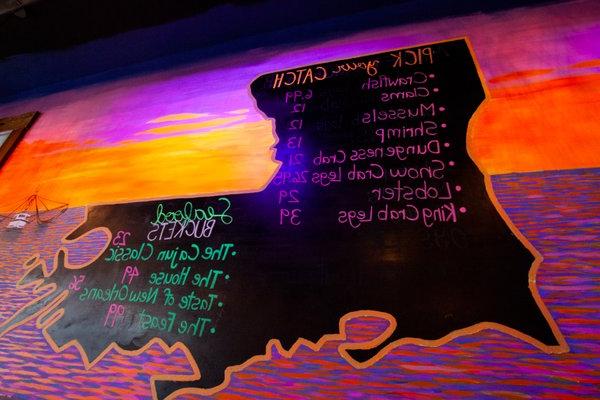 PICK your CATCH
• Crawfish 6.99
• Clams 12
• Mussels 12
• Shrimp 13
• Dungeness Crab 21
• Snow Crab Legs 26.95
• Lobster 29
• King Crab Legs 39
Seafood
BUCKETS
• The Cajun Classic 23
• The House 49
• Taste of New Orleans 56
• The Feast 99